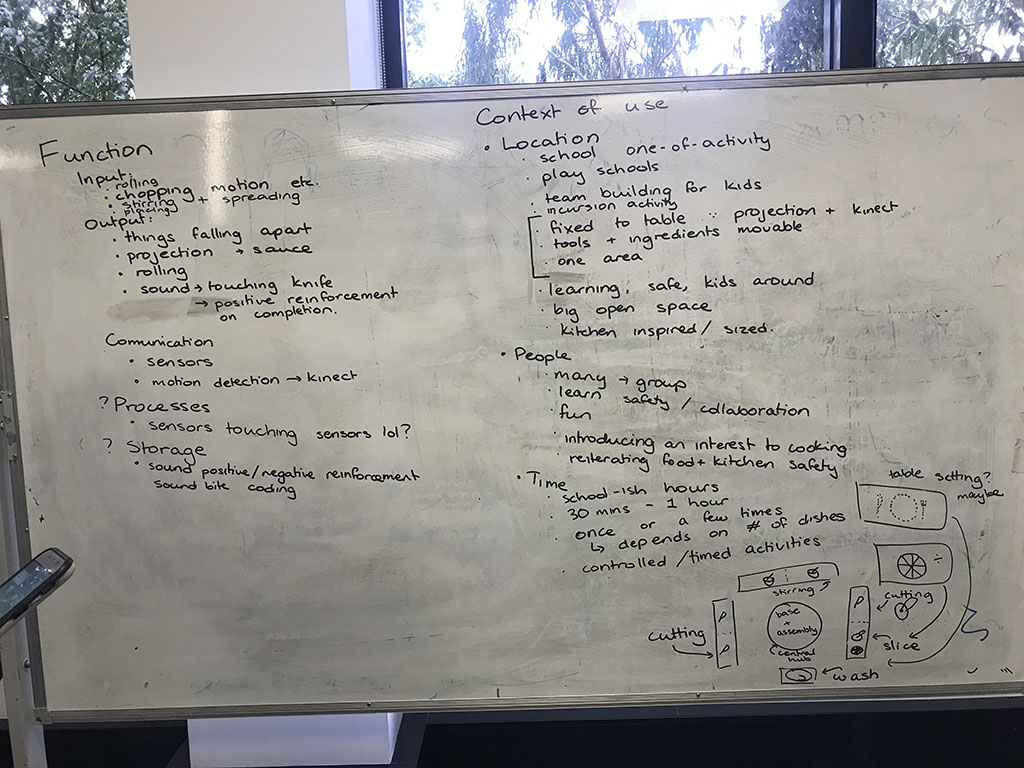 Function
Input:
· rolling
· chopping motion etc.
· stirring + spreading
placing
Output:
· things falling apart
· projection → sauce
· rolling
· sound → touching knife
→ positive reinforcement
on completion.
Comunication
· sensors
· motion detection → kinect
? Processes
· sensors touching sensors lol?
? Storage
· sound positive/negative reinforcement
sound bite coding
Context of use
· Location
· school one-of-activity
· play schools
· team building for kids
· incursion activity
· fixed to table ∵ projection + kinect
· tools + ingredients movable
· one area
· learning, safe, kids around
· big open space
· kitchen inspired / sized.
· People
· many → group
· learn safety / collaboration
· fun
· introducing an interest to cooking
· reiterating food + kitchen safety
· Time
· school-ish hours
· 30 mins - 1 hour
· once or a few times
↳ depends on # of dishes
· controlled /timed activities
table setting?
maybe
÷
stirring
cutting
base
+
assembly
central
hub
cutting
slice
wash